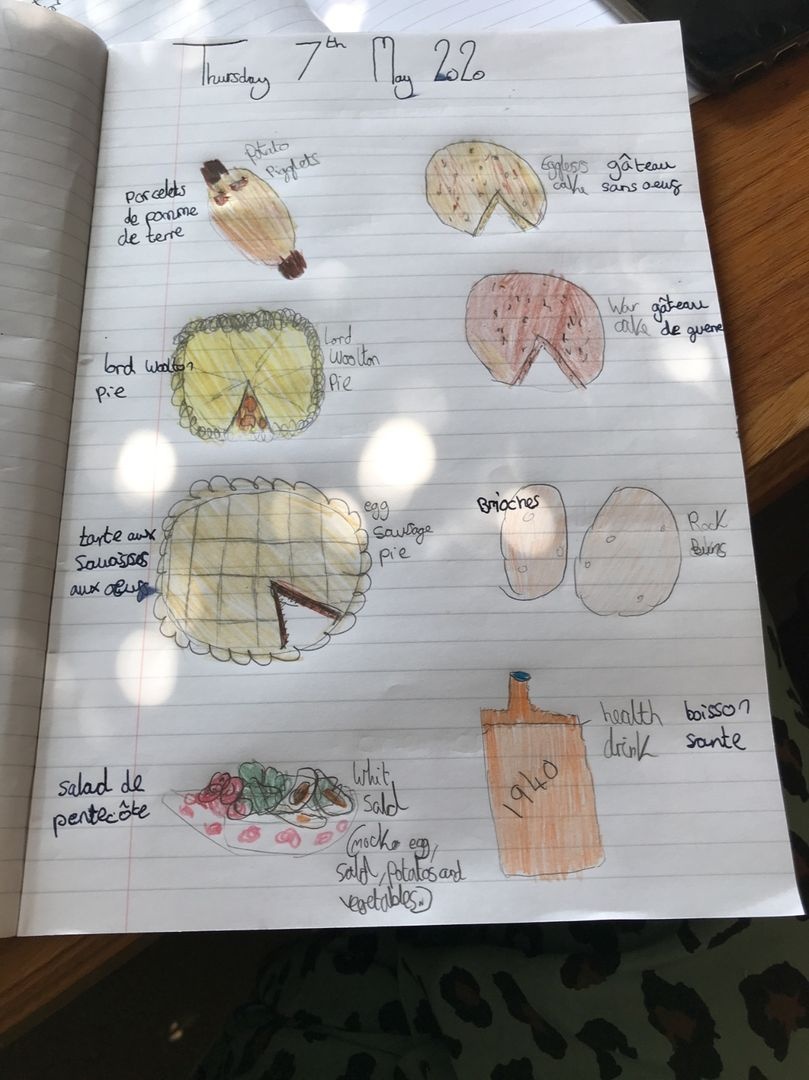 Thursday 7th May 2020
Potato
Pigglets
Porcelets
de pomme
de terre
Eggless
cake
gâteau
sans oeufs
War
cake
gâteau
de guerre
lord woolton
pie
Lord
Woolton
Pie
tarte aux
Sausisses
aux œufs
egg
Sausage
pie
Brioches
Rock
Buns
salad de
pentecôte
Whit
Sald
(mock egg,
sald, potatos and
vegetables.)
1940
health
drink
boisson
sante